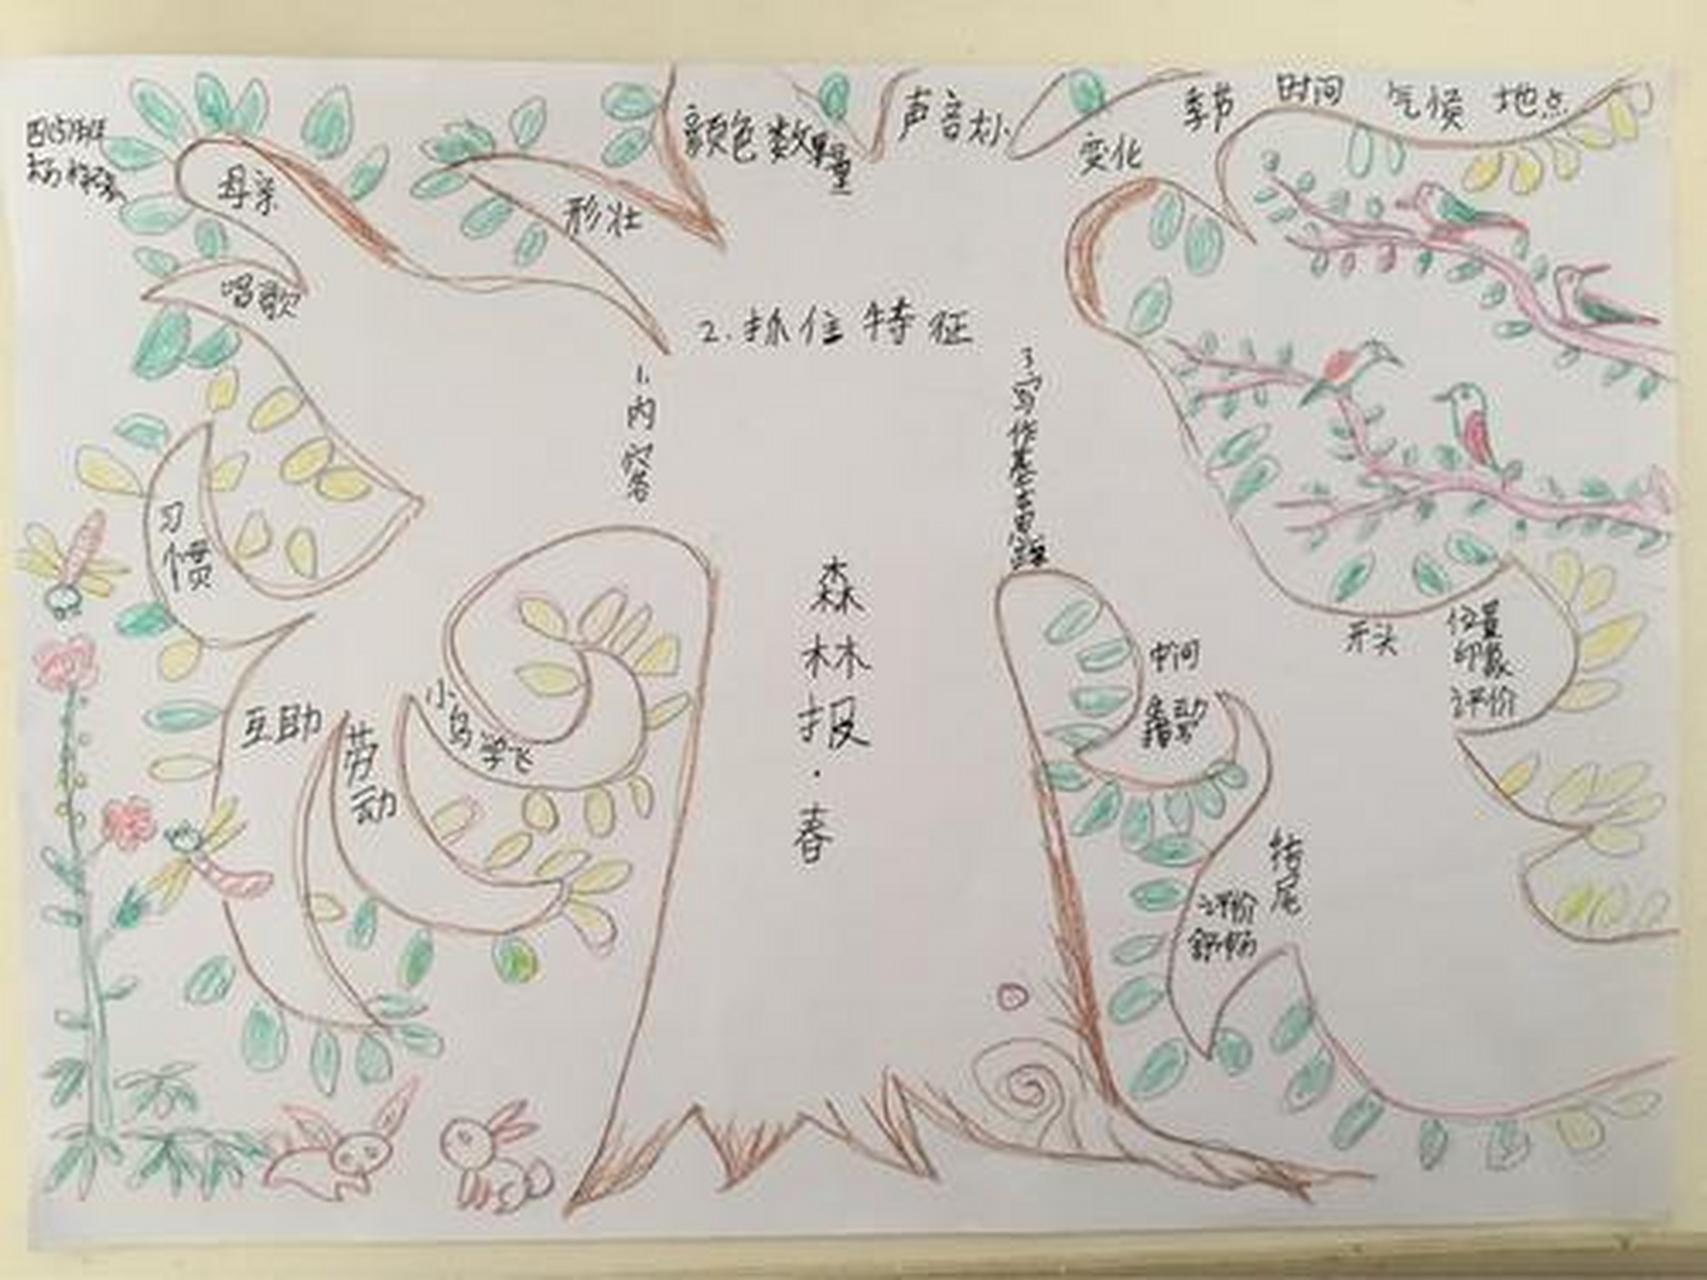 母亲
唱歌
习惯
互助
劳动
小鸟学飞
1.内容
形壮
颜色数量
声音大小
变化
季节 时间 气候 地点
2.抓住特征
3写作基本思路
森林报·春
开头
位置
印象
评价
中间
结尾
评价
舒畅